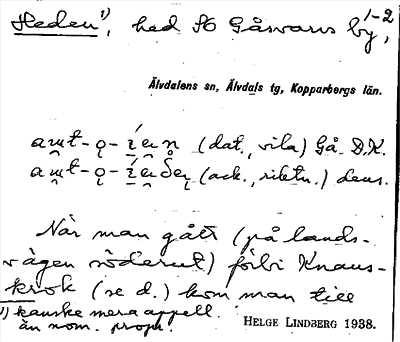 Heden¹⁾, hed SO Gåsvarvs by, 1-2
Älvdalens sn, Älvdals tg, Kopparbergs län.
(dat., vila) Gå. D.K.
(ack., riktn.) dens.
När man gått (på lands-
vägen söderut) förbi Knaus-
krok (se d.) kom man till
¹⁾ kanske mera appell.
än nom. propr.
HELGE LINDBERG 1938.